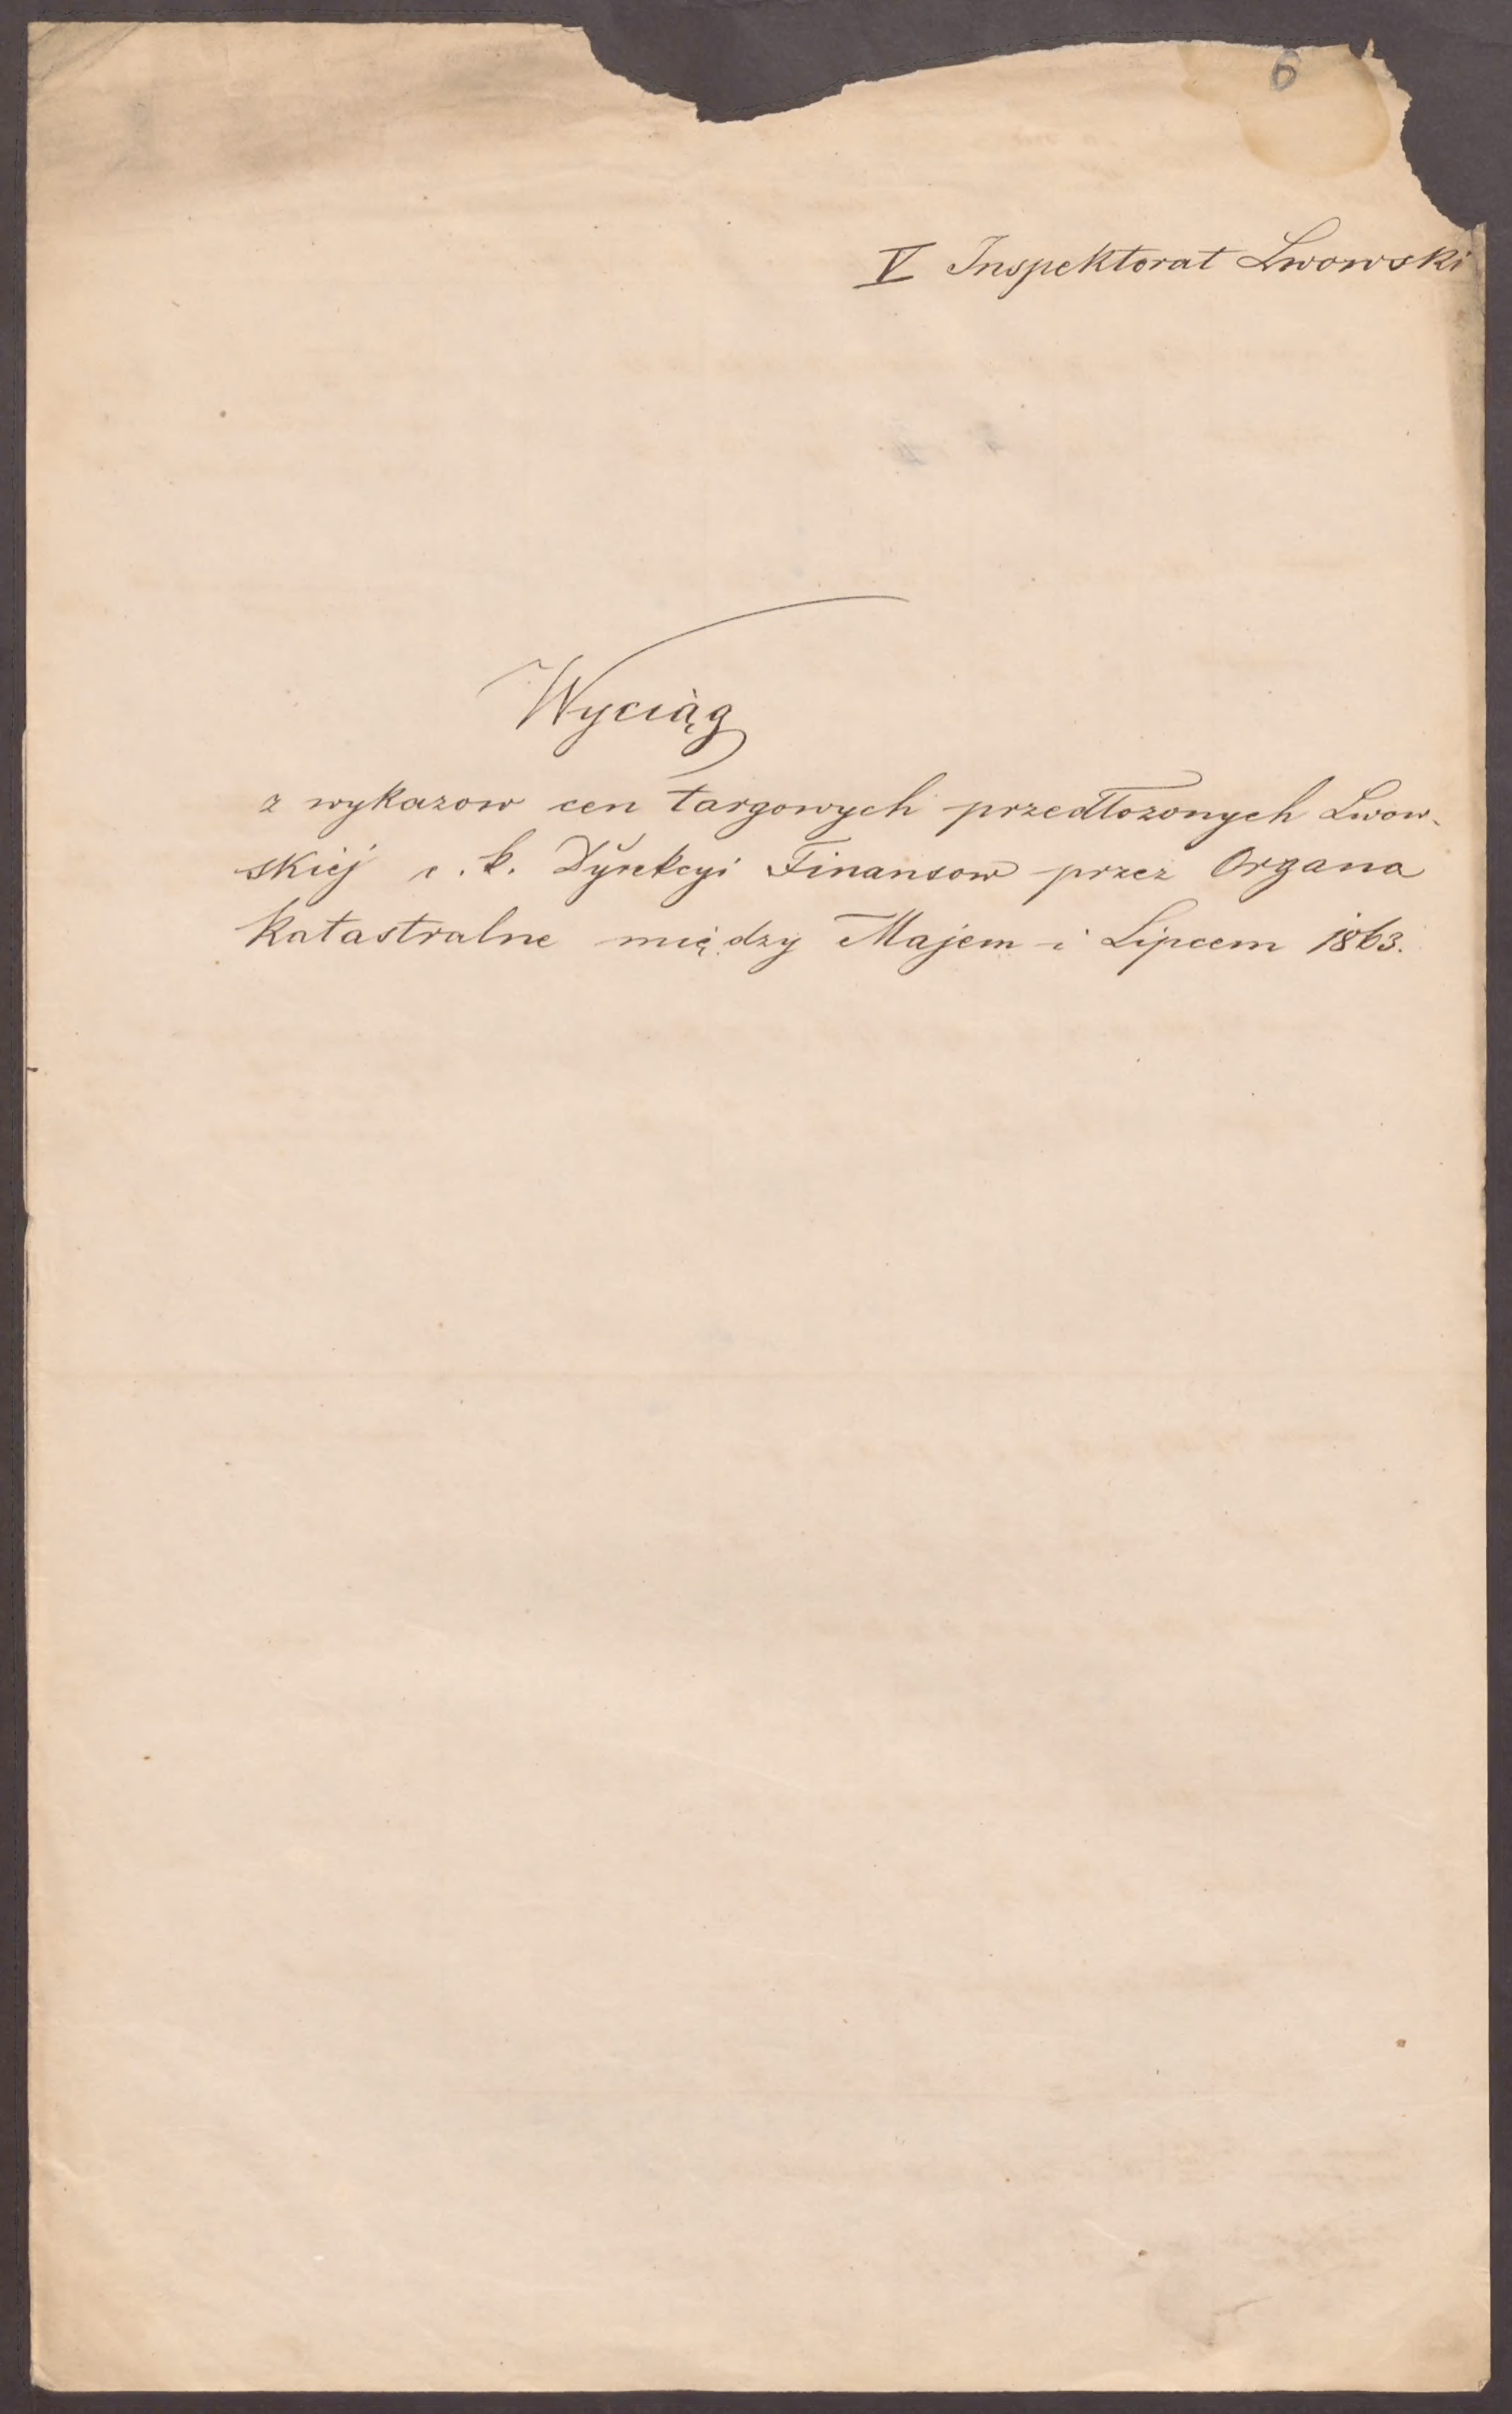 6
V Inspektorat Lwowski
Wyciąg
z wykazow cen targowych przedłozonych Lwow-
skiej c. k. Dyrekcyi Finansow przez Organa
katastralne między Majem i Lipcem 1863.